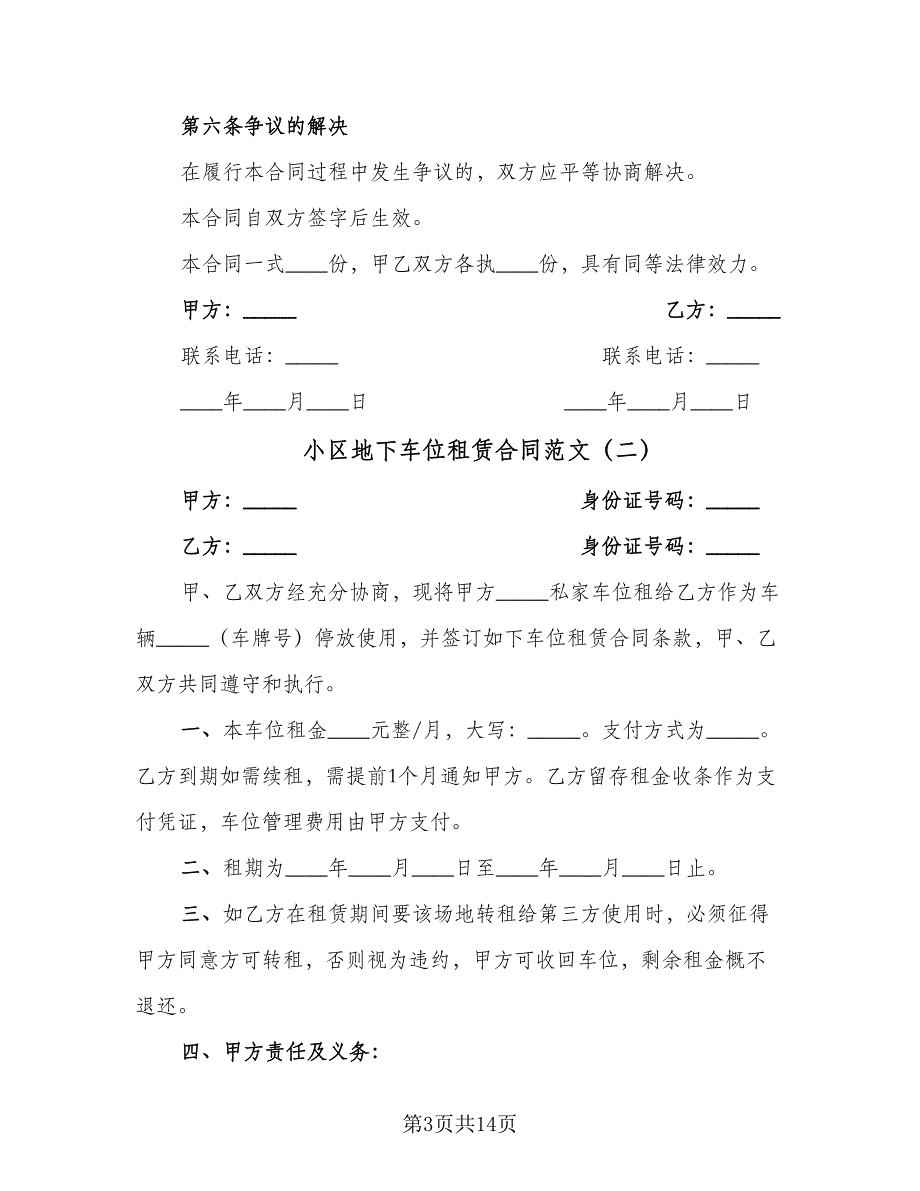 第六条争议的解决
在履行本合同过程中发生争议的，双方应平等协商解决。
本合同自双方签字后生效。
本合同一式____份，甲乙双方各执____份，具有同等法律效力。
甲方：_____ 乙方：_____
联系电话：_____ 联系电话：_____
____年____月____日 ____年____月____日
小区地下车位租赁合同范文（二）
甲方：_____ 身份证号码：_____
乙方：_____ 身份证号码：_____
甲、乙双方经充分协商，现将甲方_____私家车位租给乙方作为车
辆_____（车牌号）停放使用，并签订如下车位租赁合同条款，甲、乙
双方共同遵守和执行。
一、本车位租金____元整/月，大写：_____。支付方式为_____。
乙方到期如需续租，需提前1个月通知甲方。乙方留存租金收条作为支
付凭证，车位管理费用由甲方支付。
二、租期为____年____月____日至____年____月____日止。
三、如乙方在租赁期间要该场地转租给第三方使用时，必须征得
甲方同意方可转租，否则视为违约，甲方可收回车位，剩余租金概不
退还。
四、甲方责任及义务：
第3页共14页